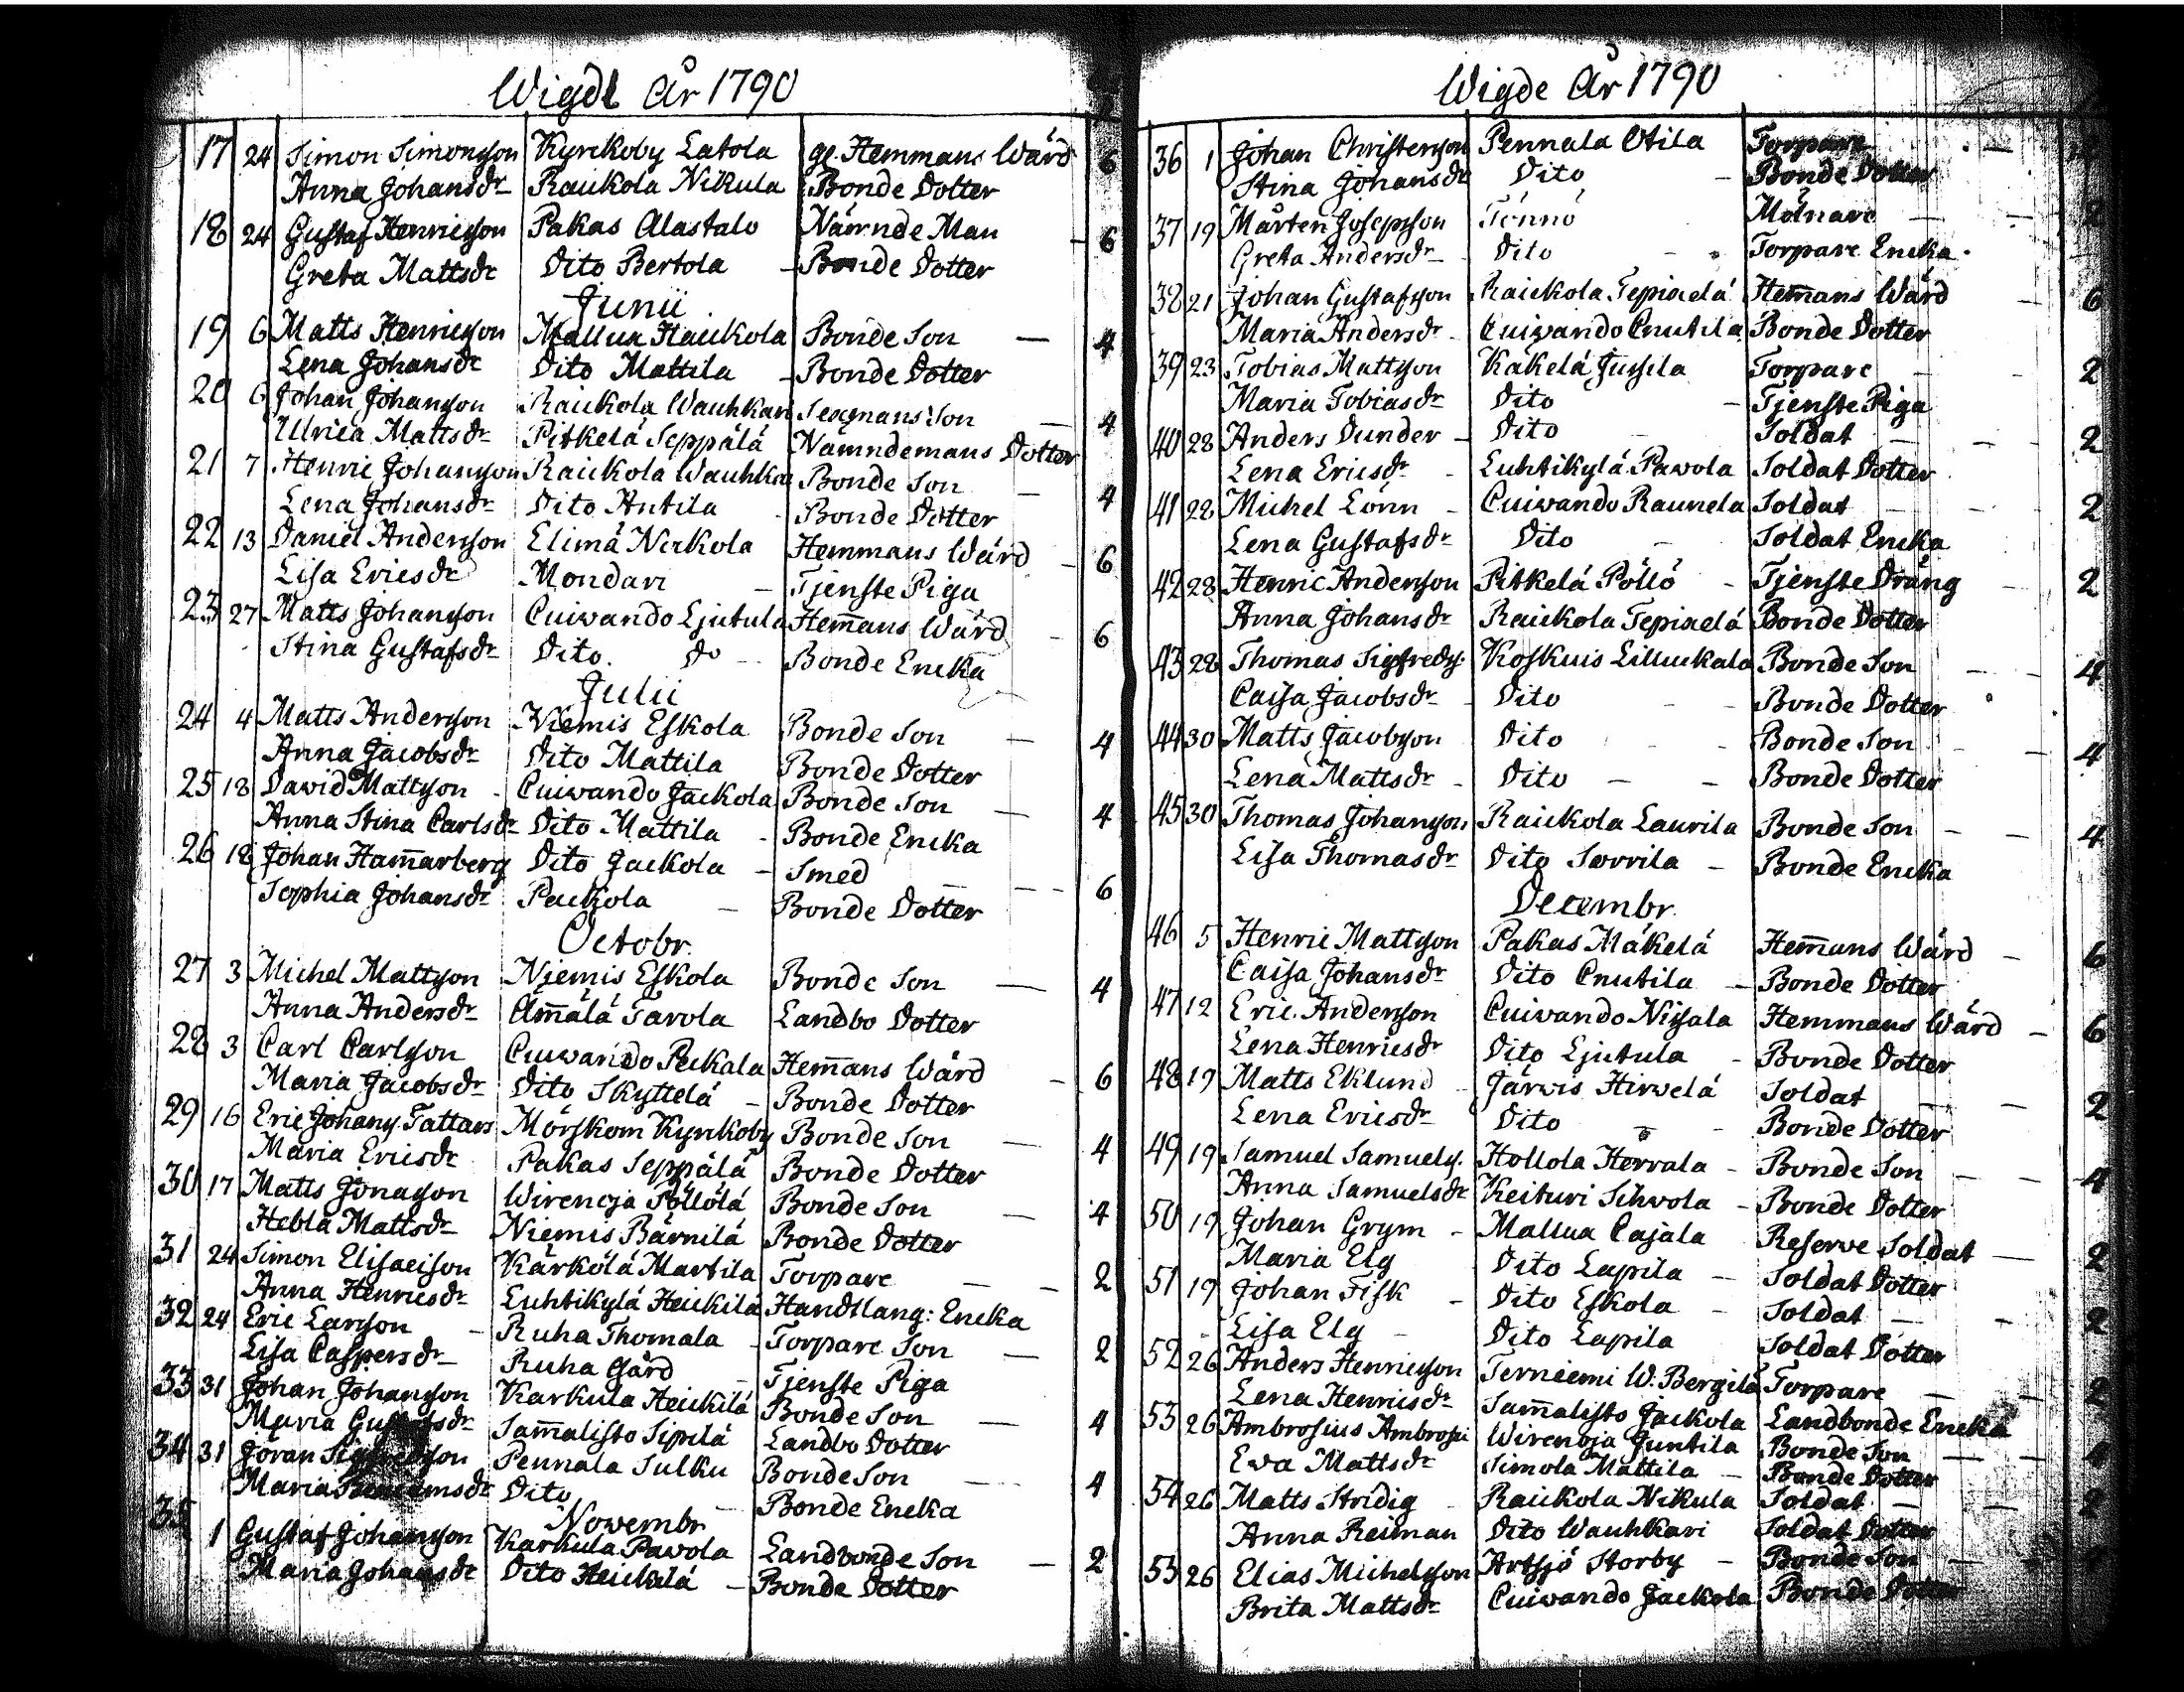 Wigde År 1790
17 24 Simon Simonsson Kyrckoby Latola gl. Hemmans Wärd 6
Anna Johansdr Raickola Nikula Bonde Dotter
18 24 Gustaf Henricsson Pakas Alastalo Nämnde Man - 6
Greta Mattsdr Dito Bertola - Bonde Dotter
Junii
19 6 Matts Henricsson Mallua Haickola Bonde Son — 4
Lena Johansdr Dito Mattila - Bonde Dotter
20 6 Johan Johansson Raickola Wauhkari Sexmans Son — 4
Ulrica Mattsdr Pitkelä Seppälä Nämndemans Dotter
21 7 Henric Johansson Raickola Wauhkari Bonde Son — 4
Lena Johansdr Dito Antila - Bonde Dotter
22 13 Daniel Andersson Elimä Nerkola Hemmans Wärd - 6
Lisa Ericsdr Mondari - Tjenste Piga
23 27 Matts Johansson Cuivando Ljutula Hem̄ans Wärd - 6
Stina Gustafsdr Dito. Do - Bonde Encka
Julii
24 4 Matts Andersson Niemis Eskola Bonde Son — 4
Anna Jacobsdr Dito Mattila Bonde Dotter
25 18 David Mattsson - Cuivando Jackola Bonde Son — 4
Anna Stina Carlsdr Dito Mattila - Bonde Encka
26 18 Johan Ham̄arberg Dito Jackola - Smed — - - 6
Sophia Johansdr Packola — Bonde Dotter
Octobr.
27 3 Michel Mattsson Niemis Eskola Bonde Son — 4
Anna Andersdr Äm̄älä Tavola Landbo Dotter
28 3 Carl Carlsson Cuivando Peckala Hem̄ans Wärd - 6
Maria Jacobsdr Dito Skyttelä - Bonde Dotter
29 16 Eric Johanss. Tattars Mörskom Kyrckoby Bonde Son — 4
Maria Ericsdr Pakas Seppälä Bonde Dotter
30 17 Matts Jonasson Wirenoja Pöllölä Bonde Son — 4
Hebla Mattsdr Niemis Bärnilä Bonde Dotter
31 24 Simon Elisaeison Kärkölä Martila Torpare — - 2
Anna Henricsdr Luhtikylä Heickilä Handtlang: Encka
32 24 Eric Larsson - Ruha Thomala - Torpare Son — 2
Lisa Caspersdr Ruha Gård - Tjenste Piga
33 31 Johan Johansson Karkula Heickilä Bonde Son — 4
Maria Gustafsdr Sam̄alisto Sipilä Landbo Dotter
34 31 Jöran Sigfredsson Pennala Sulku Bonde Son — 4
Maria Dito - Bonde Encka
Novembr
35 1 Gustaf Johansson Karkula Pavola Landbonde Son — 2
Maria Johansdr Dito Heickilä - Bonde Dotter
Wigde År 1790
36 1 Johan Christersson Pennala Otila Torpare - — 2
Stina Johansdr Dito - Bonde Dotter
37 19 Mårten Josepsson Tönnö Mölnare — - 2
Greta Andersdr - Dito - - Torpare Encka.
38 21 Johan Gustafsson Raickola Tepiaelä Hem̄ans Wärd - 6
Maria Andersdr - Cuivando Cnutila Bonde Dotter
39 23 Tobias Mattsson Käkelä Jussila Torpare - 2
Maria Tobiasdr Dito - Tjenste Piga
40 28 Anders Dunder - Dito - Soldat — - - 2
Lena Ericsdr - Luhtikylä Pavola Soldat Dotter
41 28 Michel Lönn - Cuivando Raunela Soldat - - - 2
Lena Gustafsdr Dito - Soldat Encka
42 28 Henric Andersson Pitkelä Pöllö - Tjenste Dräng - 2
Anna Johansdr Raickola Tepiaelä Bonde Dotter
43 28 Thomas Sigfreds: Koskuis Lilluckala Bonde Son — - 4
Caisa Jacobsdr - Dito - - Bonde Dotter
44 30 Matts Jacobsson Dito - - Bonde Son - — 4
Lena Mattsdr - Dito — - Bonde Dotter
45 30 Thomas Johansson Raickola Laurila Bonde Son - — 4
Lisa Thomasdr Dito Sorrila - Bonde Encka
Decembr.
46 5 Henric Mattsson Pakas Mäkelä Hem̄ans Wärd - 6
Caisa Johansdr Dito Cnutila - Bonde Dotter
47 12 Eric Andersson Cuivando Nissala Hemmans Wärd - 6
Lena Henricsdr Dito Ljutula - Bonde Dotter
48 19 Matts Eklund - Järvis Hirvelä Soldat — — 2
Lena Ericsdr Dito - - Bonde Dotter
49 19 Samuel Samuels. Hollola Herrala - Bonde Son — - - 4
Anna Samuelsdr Keituri Sihvola - Bonde Dotter
50 19 Johan Grym - Mallua Cajala Reserve Soldat — 2
Maria Elg Dito Lapila - Soldat Dotter
51 19 Johan Fisk - Dito Eskola - Soldat — - 2
Lisa Elg - Dito Lapila Soldat Dotter
52 26 Anders Henricsson Terniemi W. Bergilä Torpare — — 2
Lena Henricsdr Sam̄alisto Jackola Landbonde Encka
53 26 Ambrosius Ambrosii Wirenoja Juntila Bonde Son — - 4
Eva Mattsdr Simola Mattila - Bonde Dotter
54 26 Matts Stridig - Raickola Nikula Soldat — — 2
Anna Reiman Dito Wauhkari Soldat Dotter
55 26 Elias Michelsson Artsjö Storby - Bonde Son — 4
Brita Mattsdr Cuivando Jackola Bonde Dotter